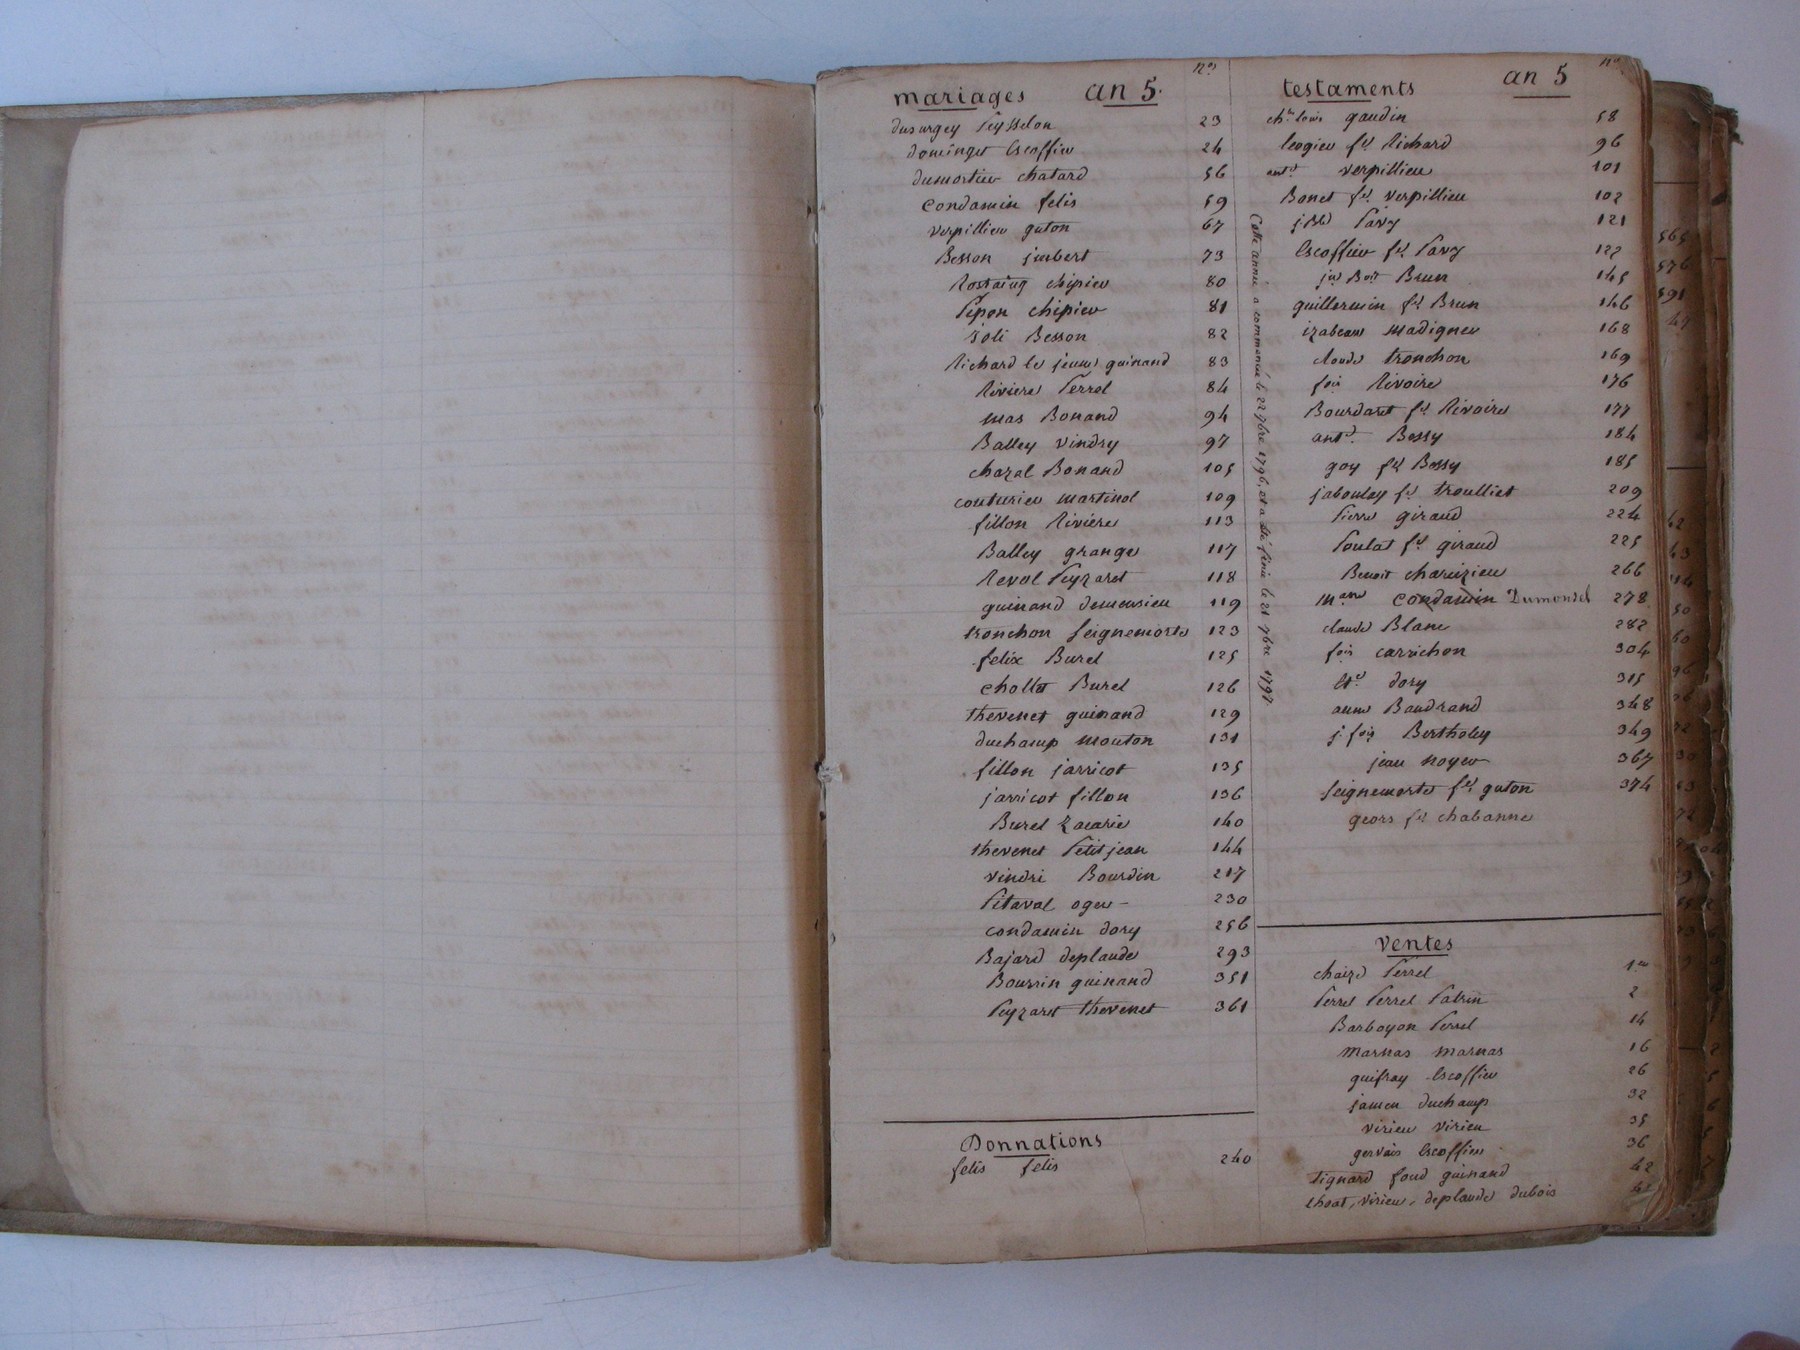 mariages an 5. nos
dusurgey Peysselon 23
dominget Escoffier 24
dumortier chatard 56
Condamin felis 59
verpillieu guton 67
Besson jmbert 73
Rostaing chipier 80
Pipon chipier 81
Joli Besson 82
Richard le jeune guinand 83
Riviere Perrel 84
mas Bonand 94
Balley vindry 97
chazal Bonand 105
couturier martinol 109
fillon Riviere 113
Balley grange 117
Revol Peyzaret 118
guinand demeusieu 119
tronchon Seignemorte 123
felix Burel 125
chollet Burel 126
thevenet guinand 129
duchamp mouton 131
fillon jarricot 135
jarricot fillon 136
Burel zacarie 140
thevenet Petitjean 144
vindri Bourdin 217
Pitaval ogier 230
condamin dory 256
Bajard deplaude 293
Bourrin guinand 351
Peyzaret thevenet 361
Donnations
felis felis 240
Cette année a commencé le 22 7bre 1796, et a été finie le 21 7bre 1797
testaments an 5 nos
chs. louis gaudin 58
leogier fe. Richard 96
ant. verpillieu 101
Bonet fe. verpillieu 102
Pavy 121
Escoffier fe. Pavy 122
Brun 145
guillermin fe. Brun 146
izabeau madignier 168
claude tronchon 169
fois Rivoire 176
Bourdaret fe. Rivoire 177
ant. Bessy 184
goy fe. Bessy 185
jabouley fe. troulliet 209
Pierre giraud 224
Poulat fe. giraud 225
Benoit charezieu 266
mane condamin Dumondel 278
claude Blanc 282
fois carrichon 304
dory 315
anne Baudrand 348
j. fois Bertholey 349
jean noyer 367
Seignemorte fe. guton 374
geors fe. chabanne
Ventes
chaize Perrel 1er
Perrel Perrel Patrin 2
Barboyon Perrel 14
marnas marnas 16
guifray Escoffier 26
jamen duchamp 32
virieu virieu 35
gervais Escoffier 36
tignard foud guinand 42
thoat, virieu, deplaude dubois
565
576
591